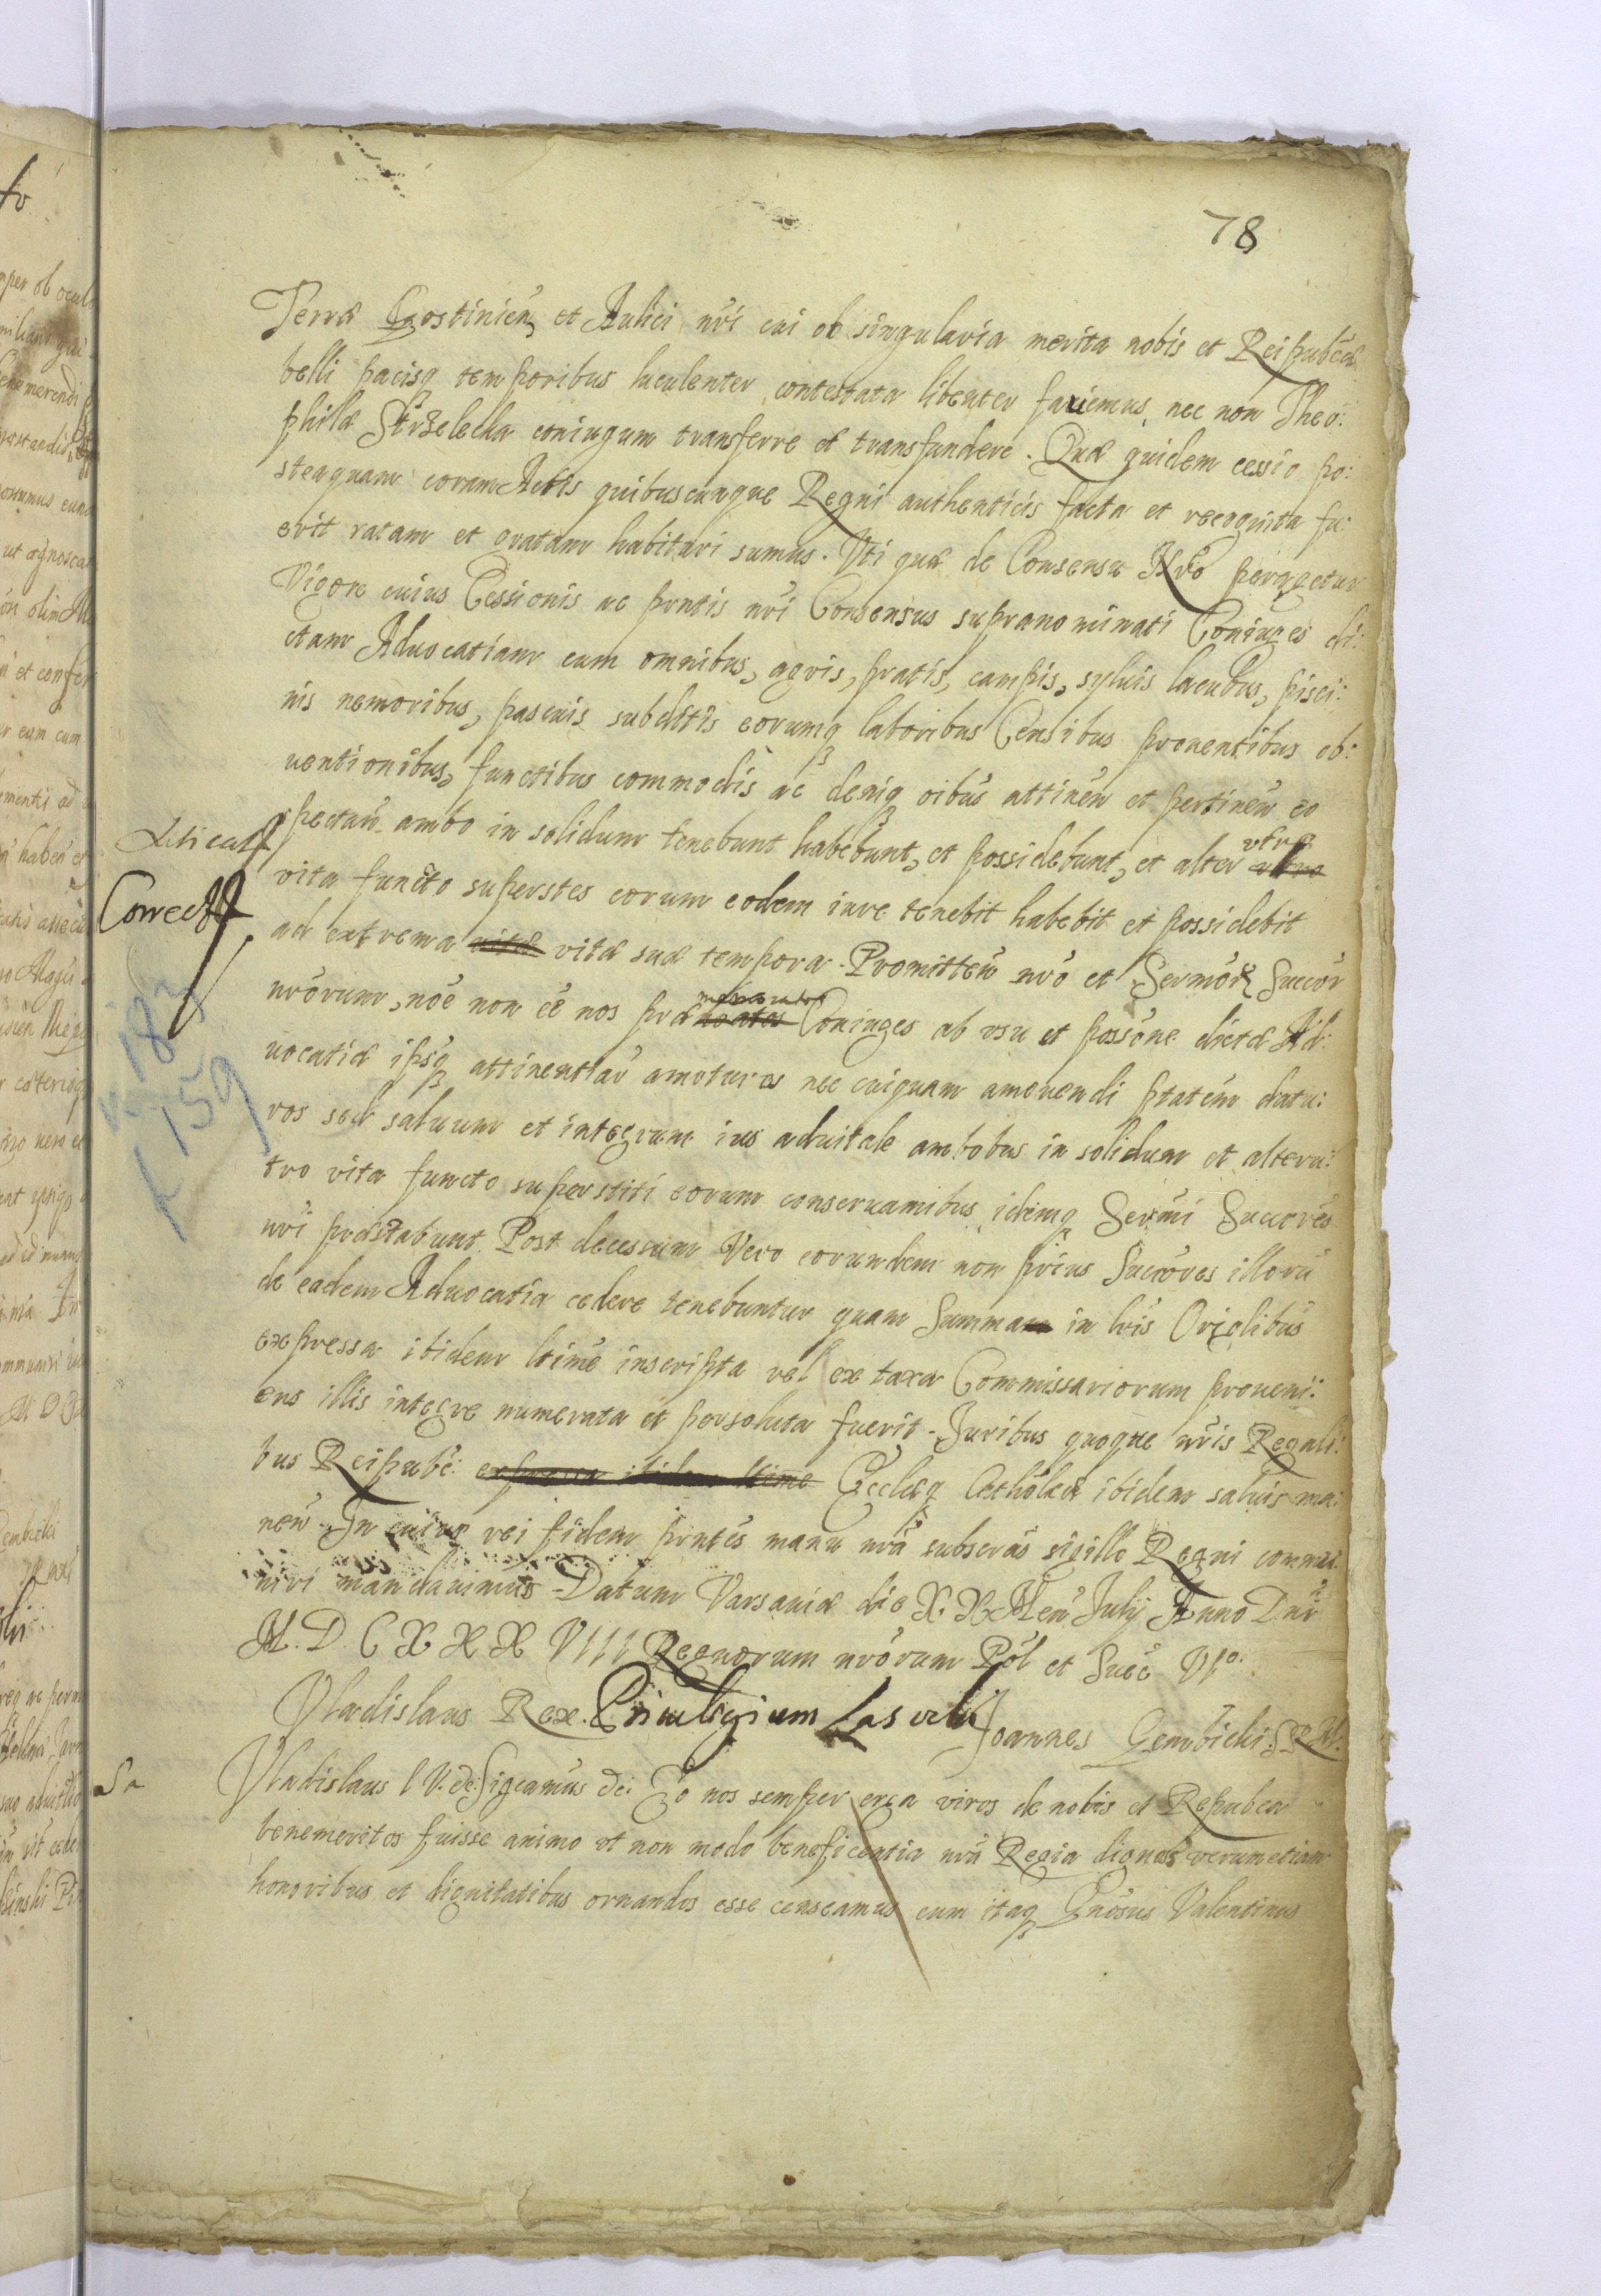 78
Terræ Gostinień et Aulici nŕi cui ob singularia merita nobis et Reipubcæ
belli pacisq temporibus luculenter contestata libenter fauemus, nec non Theo:
philæ Strzelecka coniugum transferre et transfundere. Quæ quidem cessio po:
steaquam coram Actis quibuscunque Regni authenticis facta et recognita fu:
erit ratam et gratam habituri sumus. Vti quæ de Consensu Nŕo peragetur
Vigore cuius Cessionis ac prńtis nŕi Consensus supranominati Coniuges di:
ctam Aduocatiam cum omnibus, agris, pratis, campis, syluis lacubus, pisci:
nis nemoribus, pascuis subditis eorumq laboribus Censibus prouentibus ob:
uentionibus, fructibus commodis ac deniq oibus attineń et pertineń eo
spectań ambo in solidum tenebunt habebunt, et possidebunt, et alter vtro
vita functo superstes eorum eodem iure tenebit habebit et possidebit
Correct
ad extrema vitæ vitæ suæ tempora. Promitteń nŕo et Sermoŕ Succor
nŕorum, noe non eé nos præ Coniuges ab vsu et possone dictæ Ad:
uocatiæ ipsq attinentiań amoturos nec cuiquam amouendi ptatem datu:
183
f 159
ros sed saluum et integrum ius aduitale ambobus in solidum et alteru:
tro vita functo superstiti eorum conseruamibus, idemq Sermi Succores
nŕi præstabunt. Post decessum Vero eorundem non prius Succores illorū
de eadem Aduocatia cedere tenebuntur quam Summam in lŕis Origlibus
expressa itidem ltime inscripta vel ex taxa Commissariorum proueni:
ens illis integre numerata et persoluta fuerit. Juribus quoque nŕis Regali:
bus Reipubĉ: expressa itidem ltime Ecclæq Catholcæ itidem saluis ma:
neń. In cuius rei fidem prńtes manu nŕa subscras sigillo Regni commu
niri mandauimus. Datum Varsauiæ die X. X Meń July Anno Dni
M. D C X X X VIII Regnorum nŕorum Pol et Suec VIo.
Vladislaus Rex. Priuilegium Joannes Gembicki S.R.M.
Vladislaus IV. de: Sigcamus de: Eo nos semper erga viros de nobis et Repubca
benemeritos fuisse animo vt non modo beneficentia nŕa Regia dignos verumetiam
honoribus et dignitatibus ornandos esse censeamus cum itaq Gnosus Valentinus